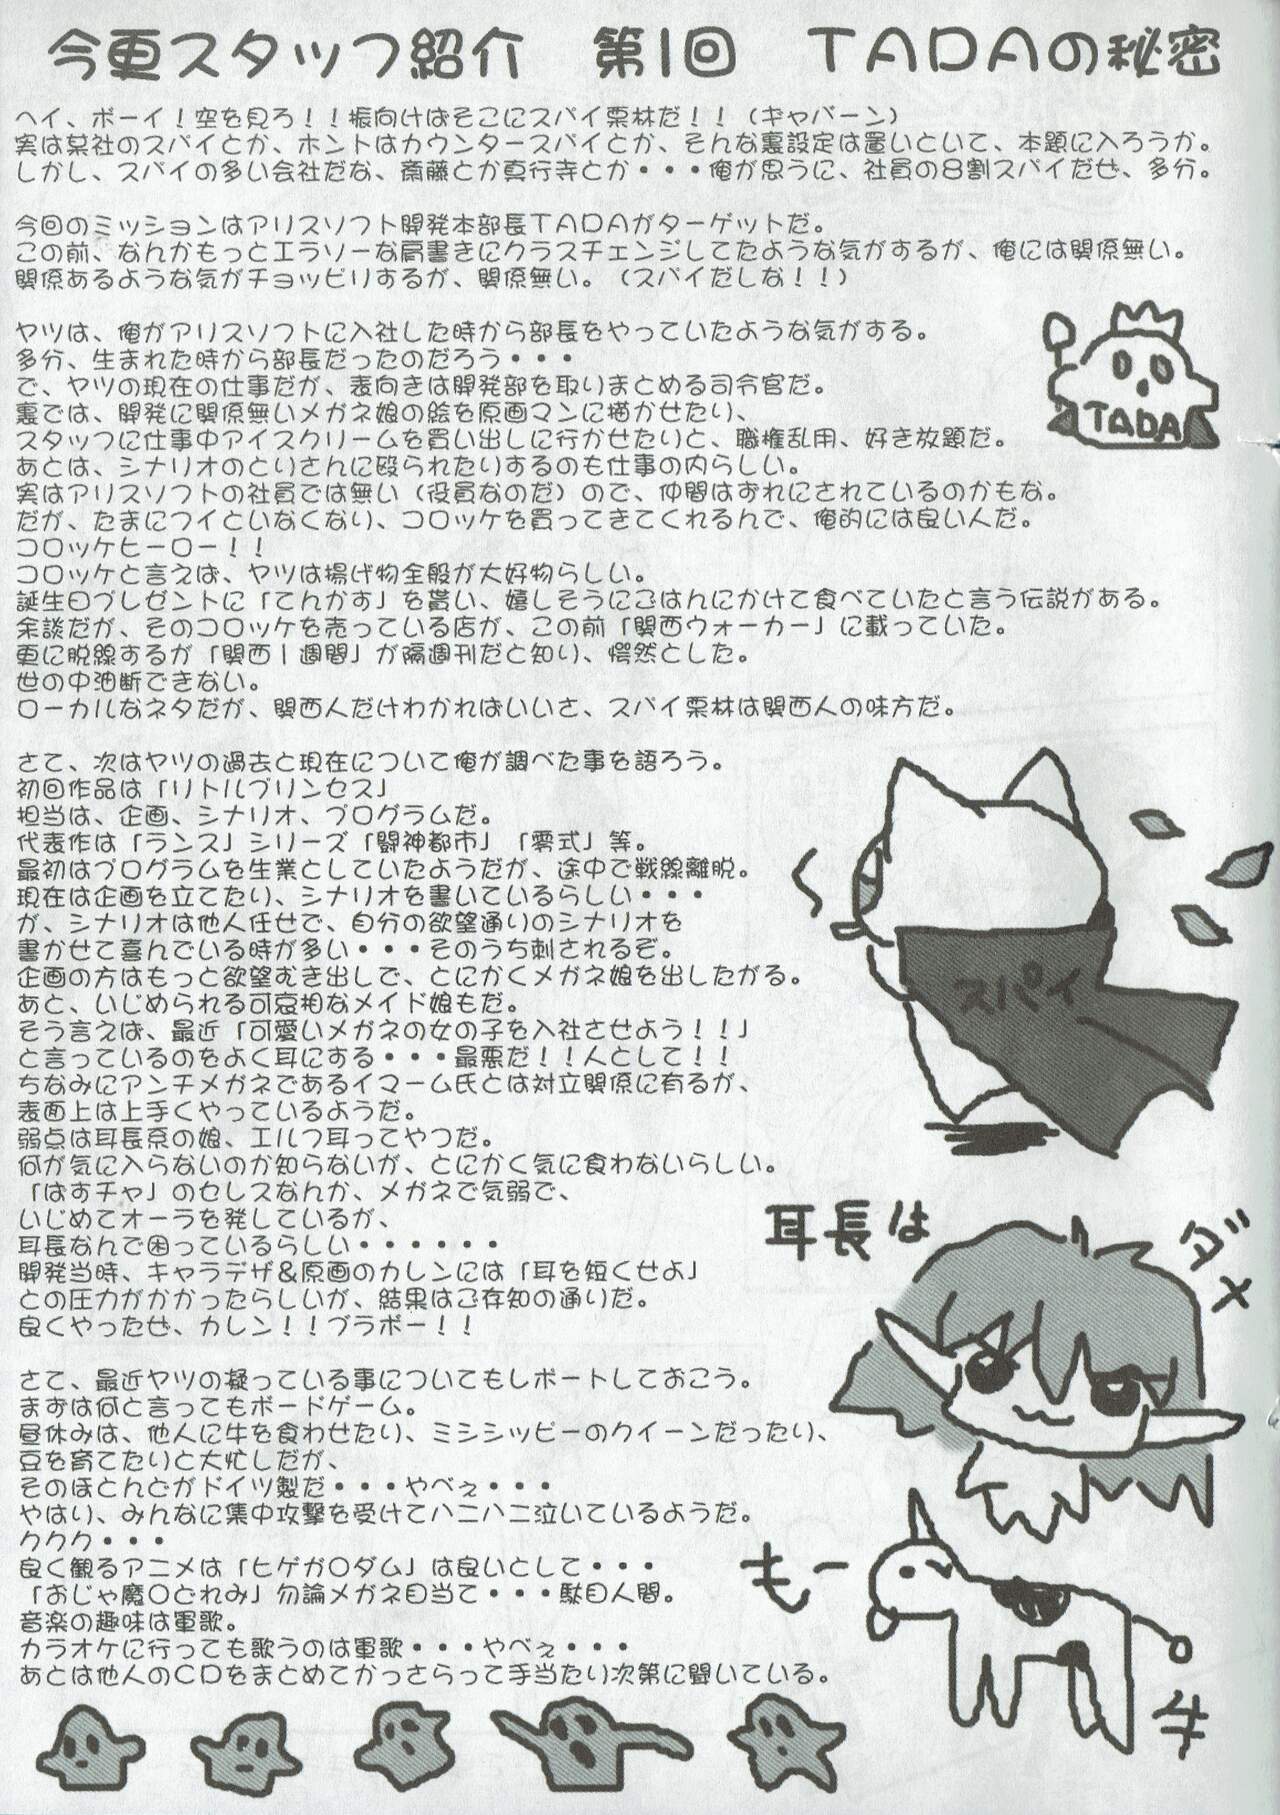 今更スタッフ紹介　第1回　TADAの秘密
ヘイ、ボーイ！空を見ろ！！振向けばそこにスパイ栗林だ！！（ギャバーン）
実は某社のスパイとか、ホントはカウンタースパイとか、そんな裏設定は置いといて、本題に入ろうか。
しかし、スパイの多い会社だな、斎藤とか真行寺とか・・・俺が思うに、社員の8割スパイだぜ、多分。
今回のミッションはアリスソフト開発本部長TADAがターゲットだ。
この前、なんかもっとエラソーな肩書きにクラスチェンジしてたような気がするが、俺には関係無い。
関係あるような気がチョッピリするが、関係無い。（スパイだしな！！）
ヤツは、俺がアリスソフトに入社した時から部長をやっていたような気がする。
多分、生まれた時から部長だったのだろう・・・
で、ヤツの現在の仕事だが、表向きは開発部を取りまとめる司令官だ。
裏では、開発に関係無いメガネ娘の絵を原画マンに描かせたり、
スタッフに仕事中アイスクリームを買い出しに行かせたりと、職権乱用、好き放題だ。
あとは、シナリオのとりさんに殴られたりするのも仕事の内らしい。
実はアリスソフトの社員では無い（役員なのだ）ので、仲間はずれにされているのかもな。
だが、たまにフイといなくなり、コロッケを買ってきてくれるんで、俺的には良い人だ。
コロッケヒーロー！！
コロッケと言えば、ヤツは揚げ物全般が大好物らしい。
誕生日プレゼントに「てんかす」を貰い、嬉しそうにごはんにかけて食べていたと言う伝説がある。
余談だが、そのコロッケを売っている店が、この前「関西ウォーカー」に載っていた。
更に脱線するが「関西1週間」が隔週刊だと知り、愕然とした。
世の中油断できない。
ローカルなネタだが、関西人だけわかればいいさ、スパイ栗林は関西人の味方だ。
さて、次はヤツの過去と現在について俺が調べた事を語ろう。
初回作品は「リトルプリンセス」
担当は、企画、シナリオ、プログラムだ。
代表作は「ランス」シリーズ「闘神都市」「零式」等。
最初はプログラムを生業としていたようだが、途中で戦線離脱。
現在は企画を立てたり、シナリオを書いているらしい・・・
が、シナリオは他人任せで、自分の欲望通りのシナリオを
書かせて喜んでいる時が多い・・・そのうち刺されるぞ。
企画の方はもっと欲望むき出しで、とにかくメガネ娘を出したがる。
あと、いじめられる可哀相なメイド娘もだ。
そう言えば、最近「可愛いメガネの女の子を入社させよう！！」
と言っているのをよく耳にする・・・最悪だ！！人として！！
ちなみにアンチメガネであるイマーム氏とは対立関係に有るが、
表面上は上手くやっているようだ。
弱点は耳長系の娘、エルフ耳ってやつだ。
何が気に入らないのか知らないが、とにかく気に食わないらしい。
「ぱすチャ」のセレスなんか、メガネで気弱で、
いじめてオーラを発しているが、
耳長なんで困っているらしい・・・・・・
開発当時、キャラデザ＆原画のカレンには「耳を短くせよ」
との圧力がかかったらしいが、結果はご存知の通りだ。
良くやったぜ、カレン！！ブラボー！！
さて、最近ヤツの凝っている事についてもレポートしておこう。
まずは何と言ってもボードゲーム。
昼休みは、他人に牛を食わせたり、ミシシッピーのクイーンだったり、
豆を育てたりと大忙しだが、
そのほとんどがドイツ製だ・・・やべぇ・・・
やはり、みんなに集中攻撃を受けてハニハニ泣いているようだ。
ククク・・・
良く観るアニメは「ヒゲガ○ダム」は良いとして・・・
「おじゃ魔○どれみ」勿論メガネ目当て・・・駄目人間。
音楽の趣味は軍歌。
カラオケに行っても歌うのは軍歌・・・やべぇ・・・
あとは他人のCDをまとめてかっさらって手当たり次第に聞いている。
TADA
スパイ
耳長は
ダメ
もー
牛